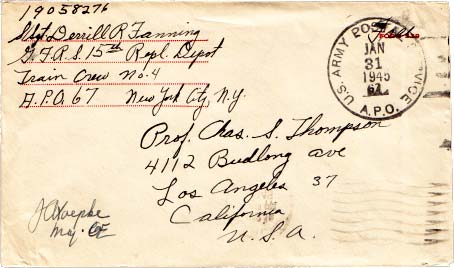 19058276
Sgt. Derrill R. Fanning
G.F.R.S. 15th Repl. Depot
Train Crew No. 4
A.P.O. 67 New York City, N.Y.
U.S. ARMY POSTAL SERVICE
JAN
31
1945
67
A.P.O.
Prof. Chas. S. Thompson
4112 Budlong ave
Los Angeles 37
California
U.S.A.
Maj.